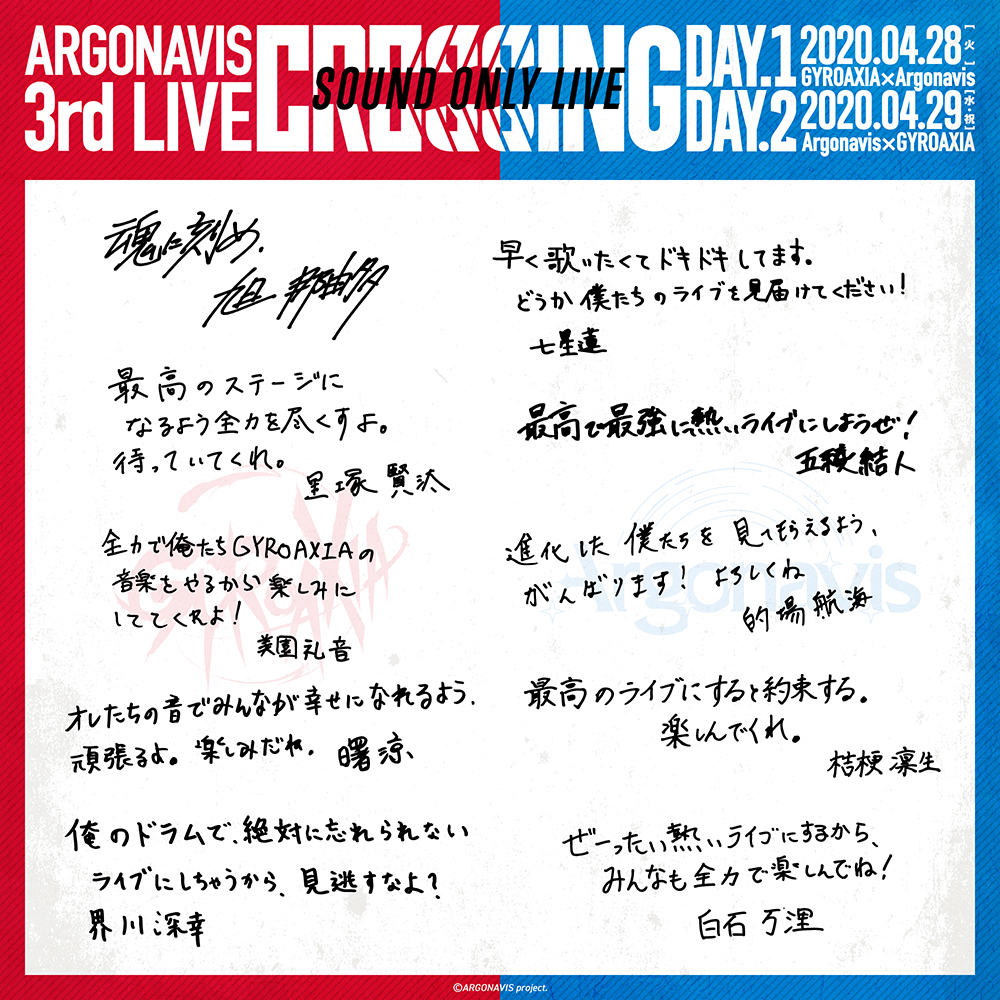 ARGONAVIS
3rd LIVE
CROSSING
SOUND ONLY LIVE
DAY.1 2020.04.28[火]
GYROAXIA×Argonavis
DAY.2 2020.04.29[水・祝]
Argonavis×GYROAXIA
魂に刻め.
旭 那由多
最高のステージに
なるよう全力を尽くすよ。
待っていてくれ。
里塚 賢汰
全力で俺たちGYROAXIAの
音楽をやるから楽しみに
しててくれよ!
美園礼音
オレたちの音でみんなが幸せになれるよう、
頑張るよ。楽しみだね。
曙 涼
俺のドラムで、絶対に忘れられない
ライブにしちゃうから、見逃すなよ?
界川深幸
早く歌いたくてドキドキしてます。
どうか僕たちのライブを見届けてください!
七星蓮
最高で最強に熱いライブにしようぜ!
五稜結人
進化した僕たちを見てもらえるよう、
がんばります! よろしくね
的場航海
最高のライブにすると約束する。
楽しんでくれ。
桔梗凛生
ぜーったい熱いライブにするから、
みんなも全力で楽しんでね!
白石万浬
GYROAXIA
Argonavis
©ARGONAVIS project.